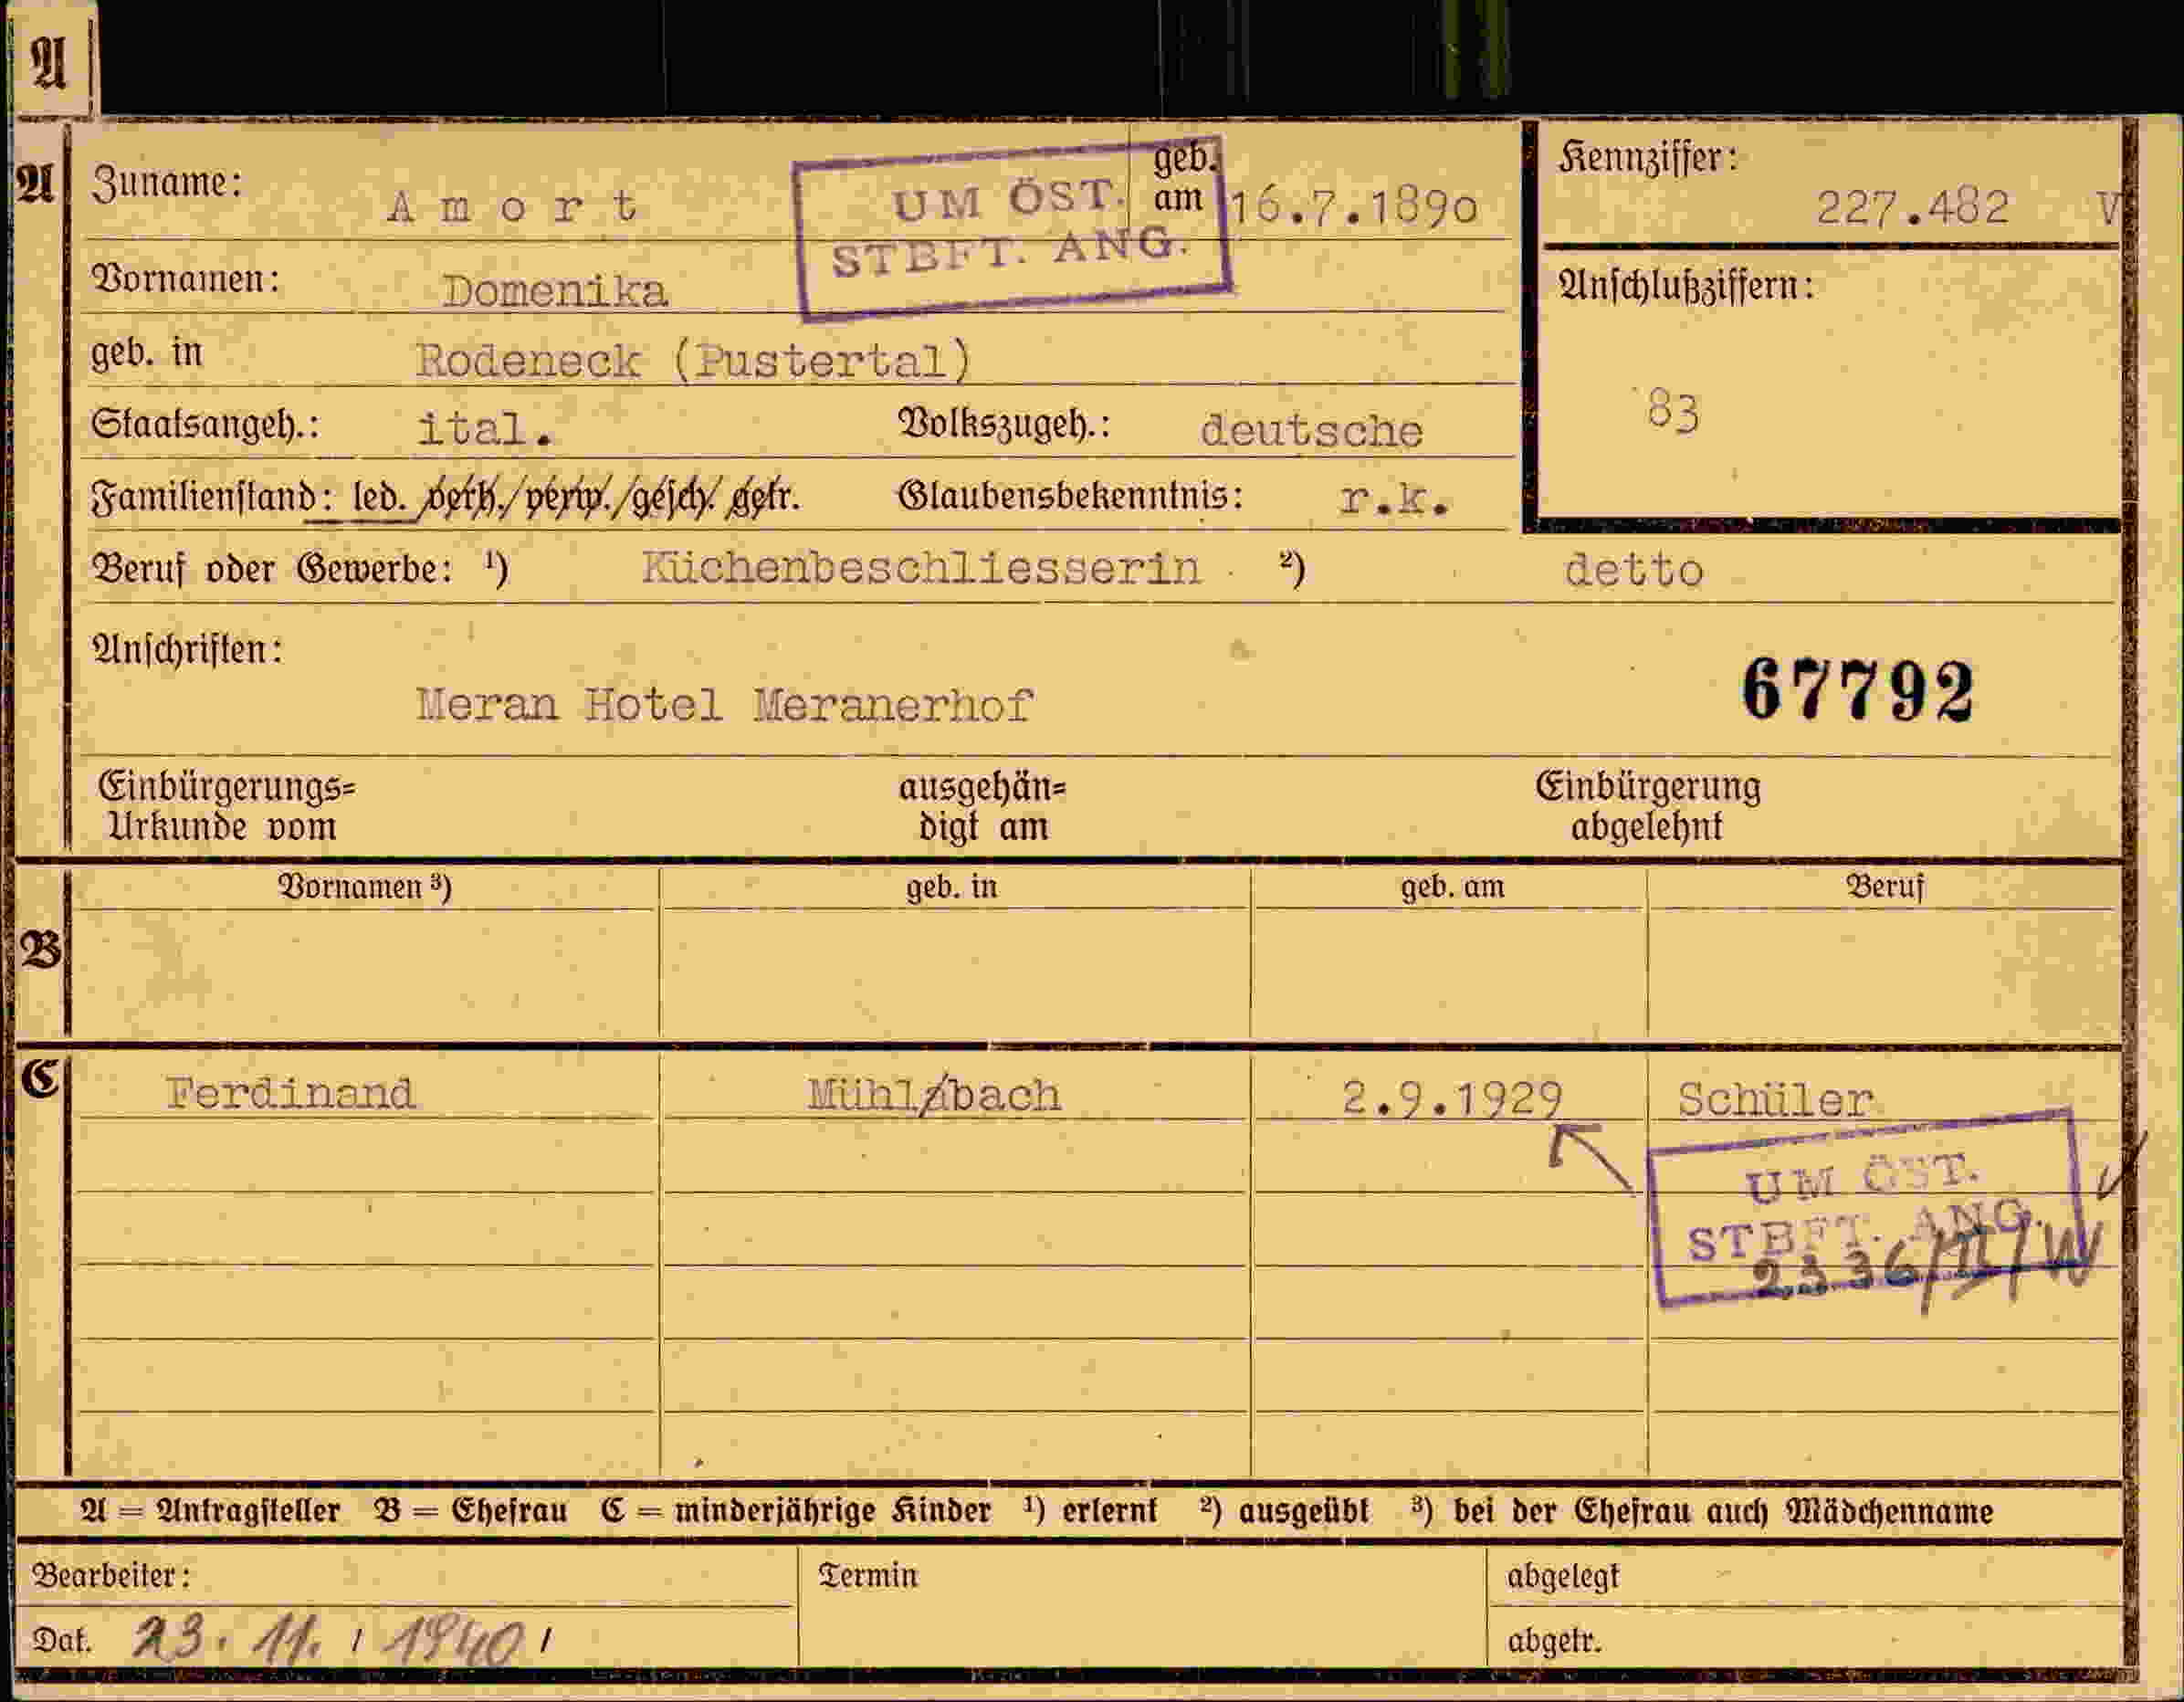 A
A Zuname: Amort geb. am 16.7.1890 Kennziffer: 227.482 V
UM ÖST.
STBFT. ANG.
Vornamen: Domenika Anschlußziffern:
geb. in Rodeneck (Pustertal)
83
Staatsangeh.: ital. Volkszugeh.: deutsche
Familienstand: led. verh./verw./gesch. getr. Glaubensbekenntnis: r.k.
Beruf oder Gewerbe: ¹) Küchenbeschliesserin ²) detto
Anschriften:
67792
Meran Hotel Meranerhof
Einbürgerungs= ausgehän= Einbürgerung
Urkunde vom digt am abgelehnt
Vornamen ³) geb. in geb. am Beruf
B
C Ferdinand Mühlbach 2.9.1929 Schüler
UM ÖST.
STBFT. ANG.
2336/II/W
A = Antragsteller B = Ehefrau C = minderjährige Kinder ¹) erlernt ²) ausgeübt ³) bei der Ehefrau auch Mädchenname
Bearbeiter: Termin abgelegt
Dat. 23. 11. 1940 abgetr.